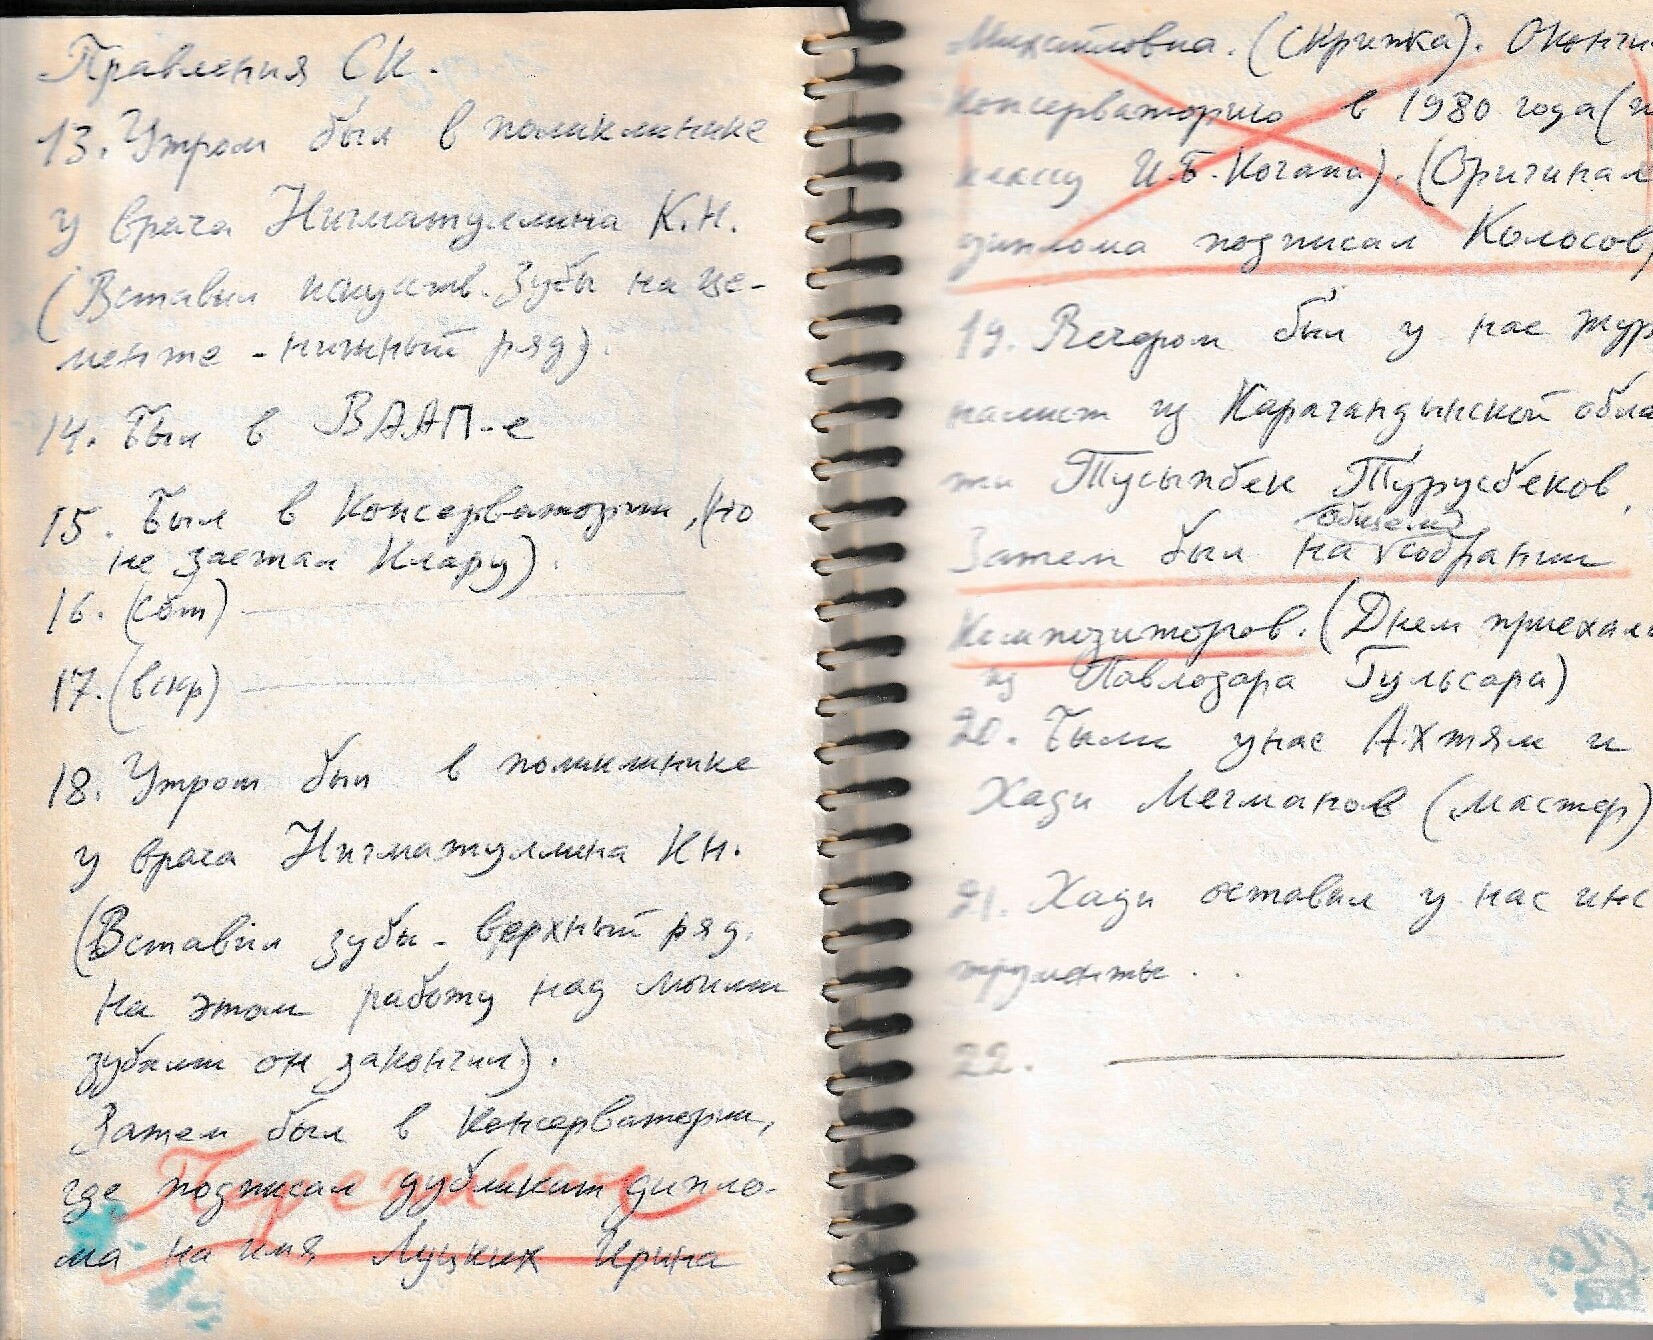 Правления СК.
13. Утром был в поликлинике
у врача Нигматуллина К.Н.
(Вставил искуств. зубы на це-
менте - нижный ряд).
14. Был в ВААП-е
15. Был в Консерватории, (но
не застал Клару).
16. (сбт)
17. (вскр)
18. Утром был в поликлинике
у врача Нигматуллина КН.
(Вставил зубы - верхный ряд.
На этом работу над моими
зубами он закончил).
Затем был в Консерватории,
где подписал дубликат дипло-
ма на имя Луцких Ирина
Михайловна. (Скрипка). Окончи
Консерваторию в 1980 года (п
классу И.Б. Когана). (Оригинал
диплома подписал Колосов)
19. Вечером был у нас жур
налист из Карагандынской обла
ти Тусыпбек Турусбеков.
общем
Затем был на собрании
Композиторов. (Днем приехала
из Павлодара Гульсара)
20. Были у нас Ахтям и
Хади Мегманов (мастер)
21. Хади оставил у нас инс
трументы.
22.